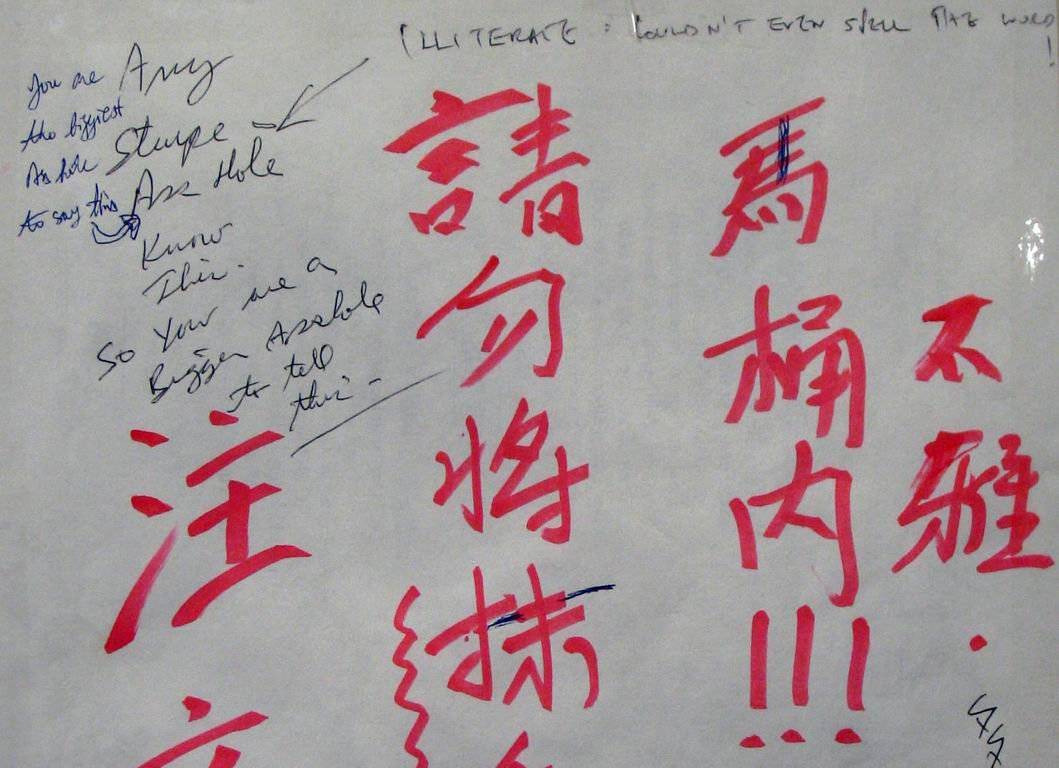 ILLITERATE : COULDN'T EVEN SPELL THE WORD !
You are
the biggest
Asshole
to say this
Any
Stupe
Ass Hole
Know
This.
So You are a
Bigger Asshole
to tell
this -
注
請勿將抹
馬桶內!!!
不雅.